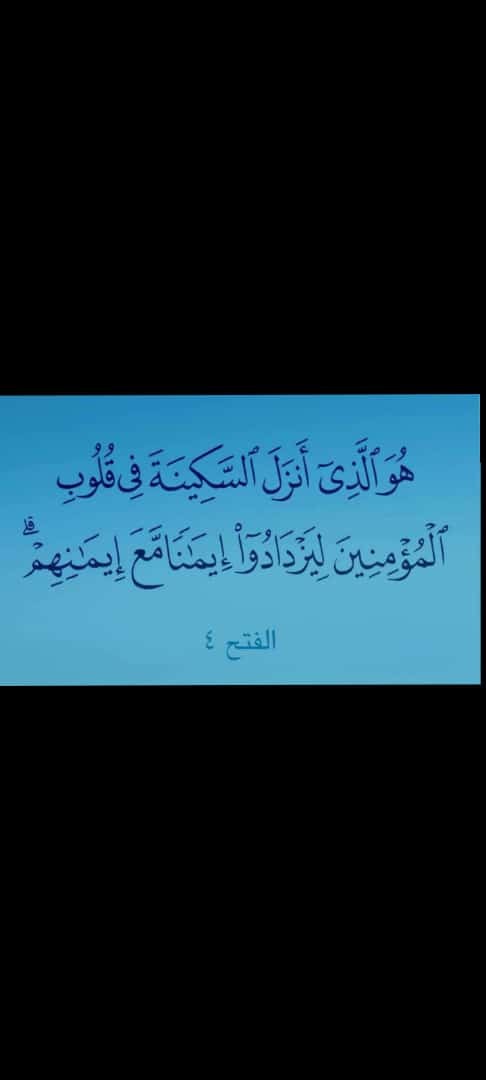 هُوَ ٱلَّذِىٓ أَنزَلَ ٱلسَّكِينَةَ فِى قُلُوبِ
ٱلْمُؤْمِنِينَ لِيَزْدَادُوٓا۟ إِيمَـٰنًا مَّعَ إِيمَـٰنِهِمْ ۗ
الفتح ٤